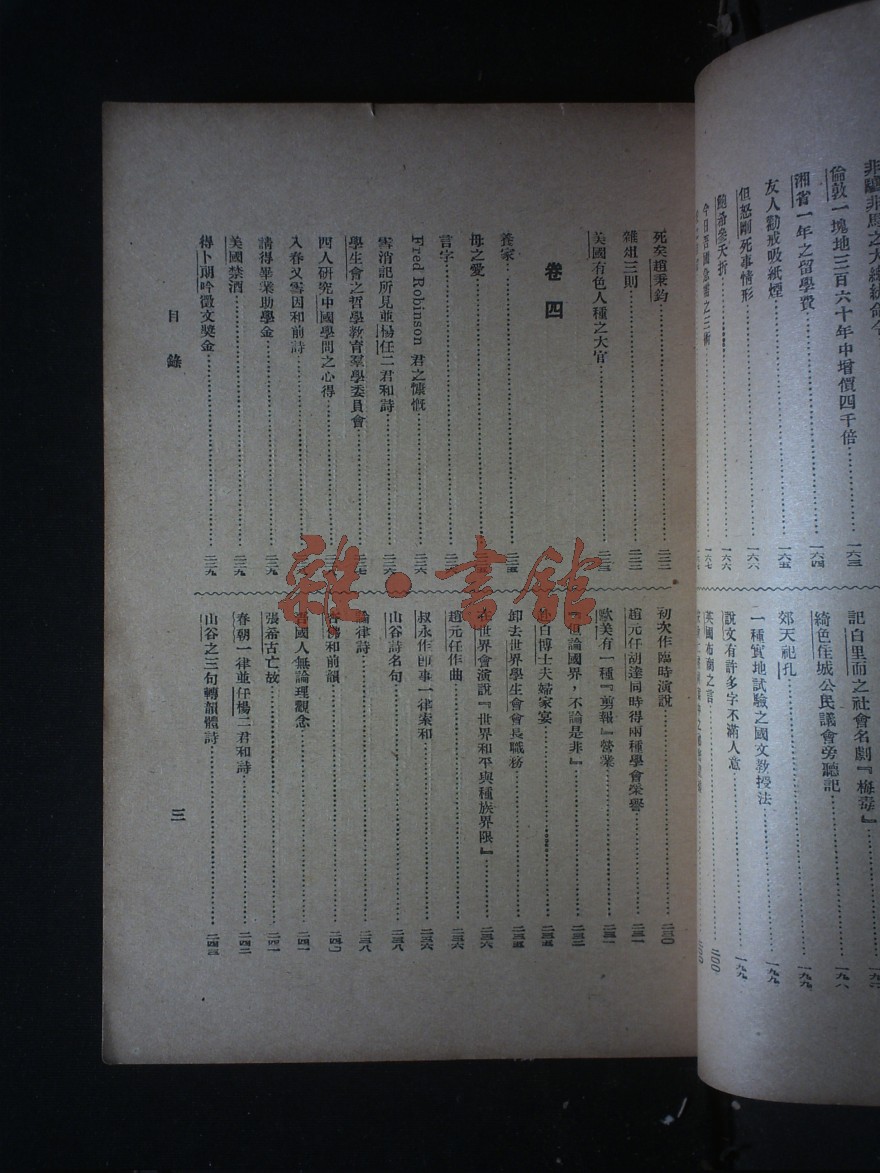 非驢非馬之大總統命令
倫敦一塊地三百六十年中增價四千倍⋯⋯一六三
湘省一年之留學費⋯⋯一六四
友人勸戒吸紙煙⋯⋯一六五
但怒剛死事情形⋯⋯一六六
鮑希參夭折⋯⋯一六六
記白里而之社會名劇『梅毒』
綺色佳城公民議會旁聽記⋯⋯一九八
郊天祀孔⋯⋯一九九
一種實地試驗之國文教授法⋯⋯一九九
說文有許多字不滿人意⋯⋯一九九
英國布商之言⋯⋯二〇〇
死矣趙秉鈞⋯⋯二二二
雜俎三則⋯⋯二二二
美國有色人種之大官⋯⋯二二三
卷四
養家⋯⋯二二五
母之愛
言字
Fred Robinson 君之慷慨⋯⋯二二六
雪消記所見並楊任二君和詩⋯⋯二二六
學生會之哲學教育羣學委員會⋯⋯二二七
四人研究中國學問之心得
入春又雪因和前詩
請得畢業助學金⋯⋯二二九
美國禁酒⋯⋯二二九
得卜朗吟徵文獎金⋯⋯二二九
初次作臨時演說⋯⋯二三〇
趙元任胡達同時得兩種學會榮譽⋯⋯二三一
歐美有一種『剪報』營業⋯⋯二三一
世論國界，不論是非』⋯⋯二三二
白博士夫婦家宴⋯⋯二三五
卸去世界學生會會長職務⋯⋯二三五
在世界會演說『世界和平與種族界限』⋯⋯二三六
趙元任作曲⋯⋯二三六
叔永作卽事一律索和⋯⋯二三六
山谷詩名句⋯⋯二三八
論律詩⋯⋯二三八
和前韻⋯⋯二四〇
吾國人無論理觀念⋯⋯二四一
張希古亡故⋯⋯二四一
春朝一律並任楊二君和詩⋯⋯二四二
山谷之三句轉韻體詩⋯⋯二四三
目錄
三
雜·書館